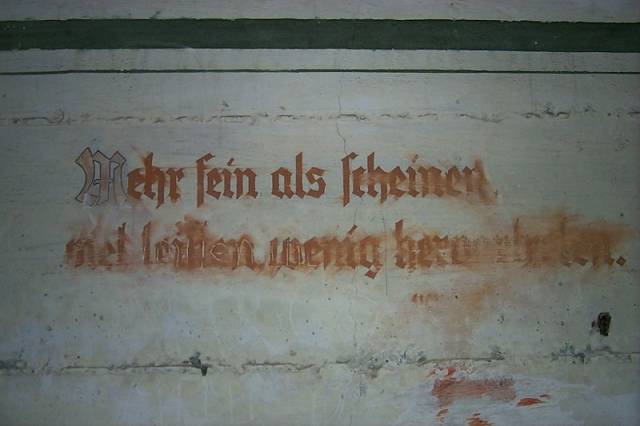 Mehr sein als scheinen,
viel leisten, wenig hervortreten.